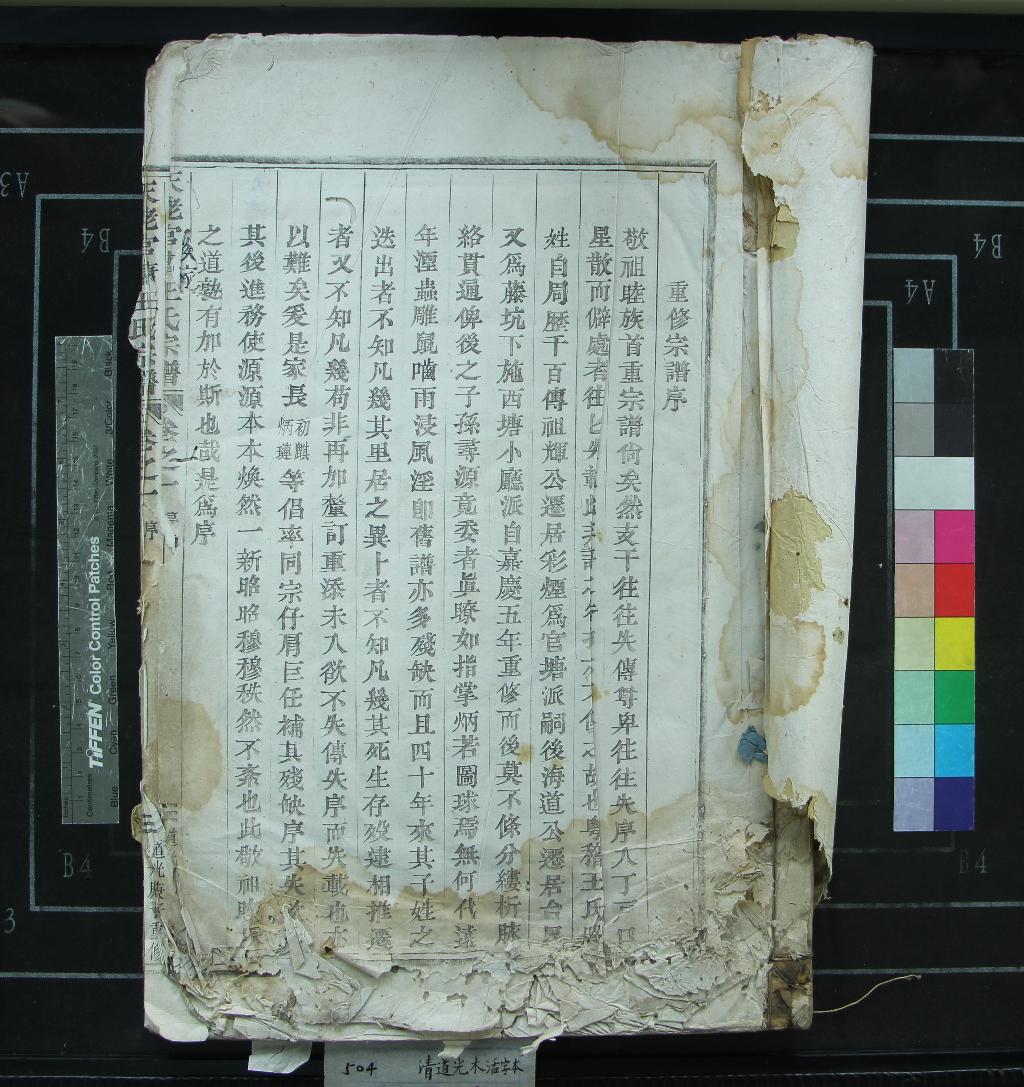 重修宗譜序
敬祖睦族首重宗譜尚矣然支干往往失傳尊卑往往失序人丁
星散而僻處者往往失載此
姓自周歷千百傳祖輝公遷居彩煙爲官塘派嗣後海道公遷居
又爲藤坑下施西塘小廳派自嘉慶五年重修而後莫不條分縷析
絡貫通俾後之子孫尋源竟委者眞瞭如指掌炳若圖球焉無何代遠
年湮蟲雕鼠嚙雨浸風淫即舊譜亦多殘缺而且四十年來其子姓之
迭出者不知凡幾其里居之異卜者不知凡幾其死生存歿遞相推遷
者又不知凡幾苟非再加釐訂重添未入欲不失傳失序而失載也亦
以難矣爰是家長初麒炳璉等倡率同宗仔肩巨任補其殘缺序其失次
其後進務使源源本本煥然一新昭昭穆穆秩然不紊也此敬祖睦
之道孰有加於斯也哉是爲序
王氏宗譜
卷之一
序
三
道光庚重修
504 清道光木活字本
TIFFEN Color Control Patches
Centimetres
Inches
Blue
Cyan
Green
Yellow
Red
Magenta
White
3/Color
Black
A3
B4
B4
A4
B4
B4
3